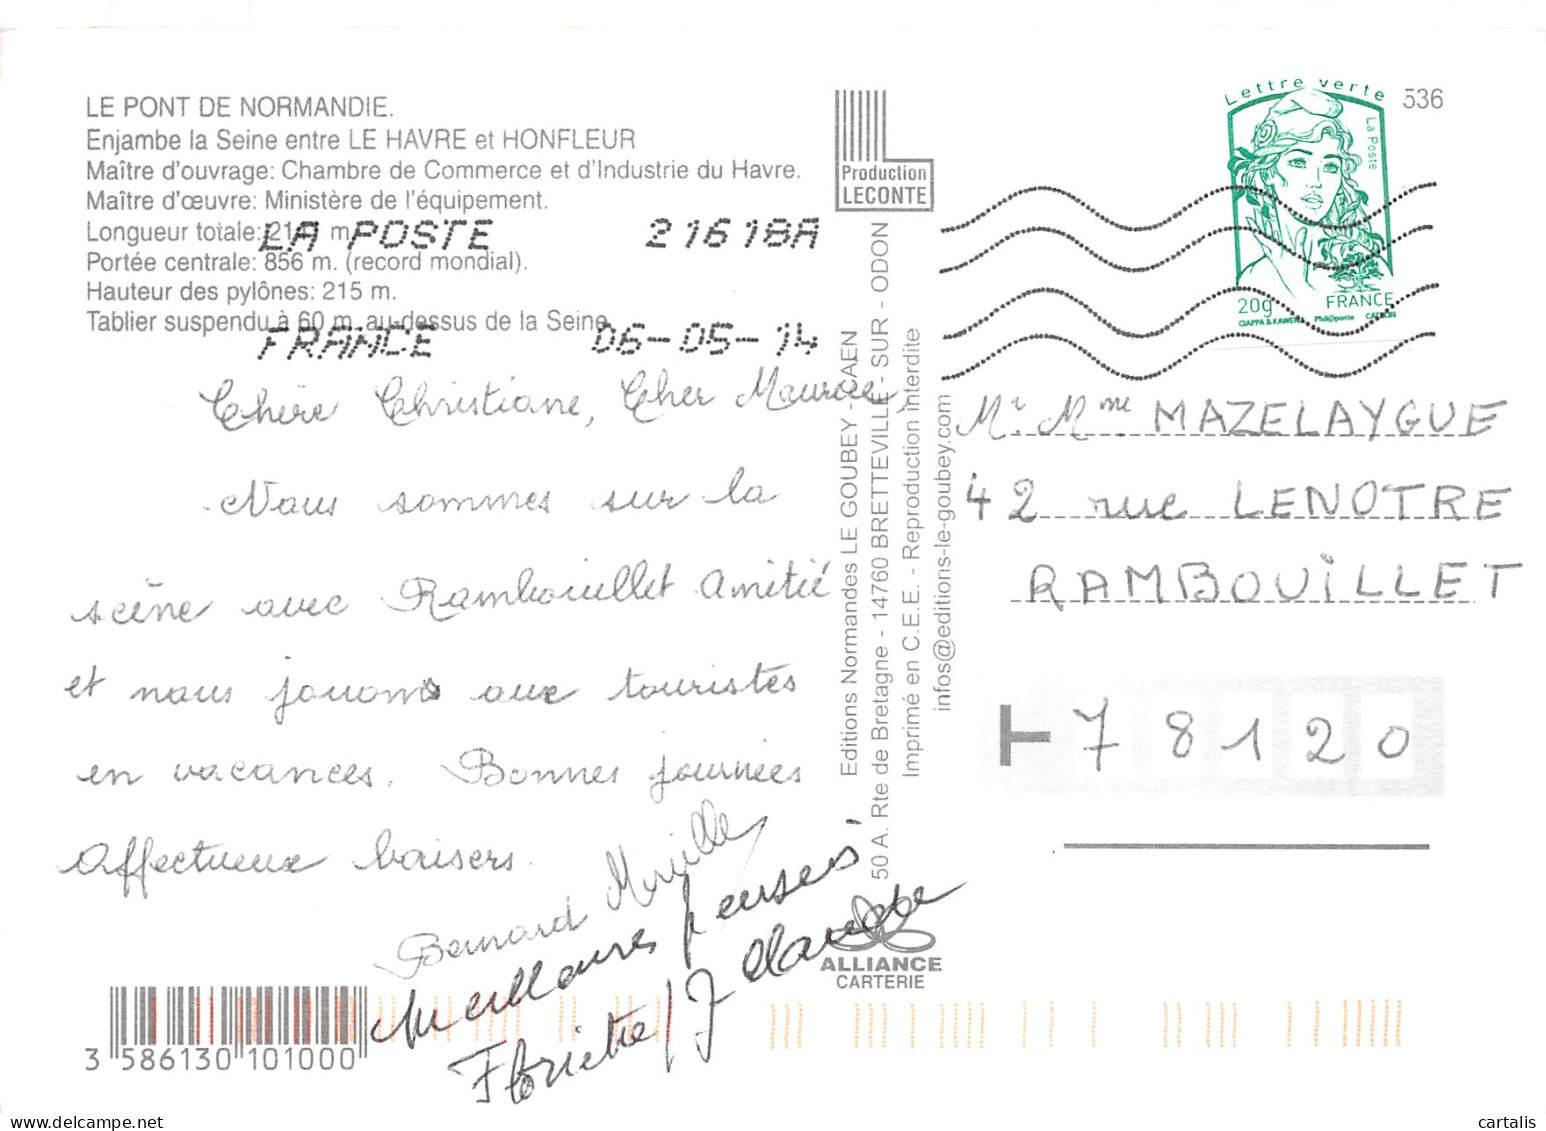 LE PONT DE NORMANDIE.
Enjambe la Seine entre LE HAVRE et HONFLEUR
Maître d'ouvrage: Chambre de Commerce et d'Industrie du Havre.
Maître d'œuvre: Ministère de l'équipement.
Longueur totale: m.
Portée centrale: 856 m. (record mondial).
Hauteur des pylônes: 215 m.
Tablier suspendu à 60 m. au-dessus de la Seine.
LA POSTE 21618A
FRANCE 06-05-14
Chère Christiane, Cher Maurice,
Nous sommes sur la
scène avec Rambouillet Amitié
et nous jouons aux touristes
en vacances. Bonnes journées
Affectueux baisers.
Bernard Mireille
Meilleures pensées
Floriette / J
3 586130 101000
Production
LECONTE
Editions Normandes LE GOUBEY - CAEN
50 A. Rte de Bretagne - 14760 BRETTEVILLE - SUR - ODON
Imprimé en C.E.E. - Reproduction interdite
infos@editions-le-goubey.com
ALLIANCE
CARTERIE
Lettre verte
La Poste
20g FRANCE
CIAPPA & KAWENA Phil@poste CATELIN
536
Mr Mme MAZELAYGUE
42 rue LENOTRE
RAMBOUILLET
78120
cartalis
www.delcampe.net